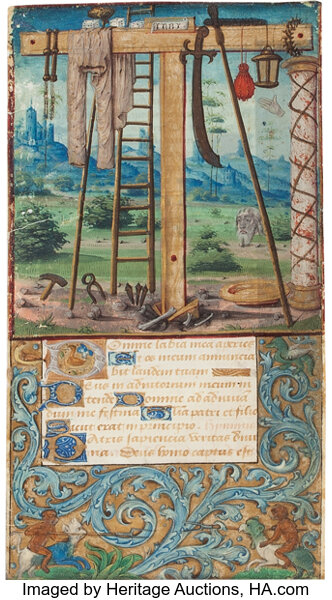 INRI
Domine labia mea aperies
Et os meum annuncia
bit laudem tuam
Deus in adiutorium meum in
tende Domine ad adiuva
dum me festina patri et filio
Sicut erat in principio
Patris sapiencia veritas divi
na Deus homo captus est
Imaged by Heritage Auctions, HA.com